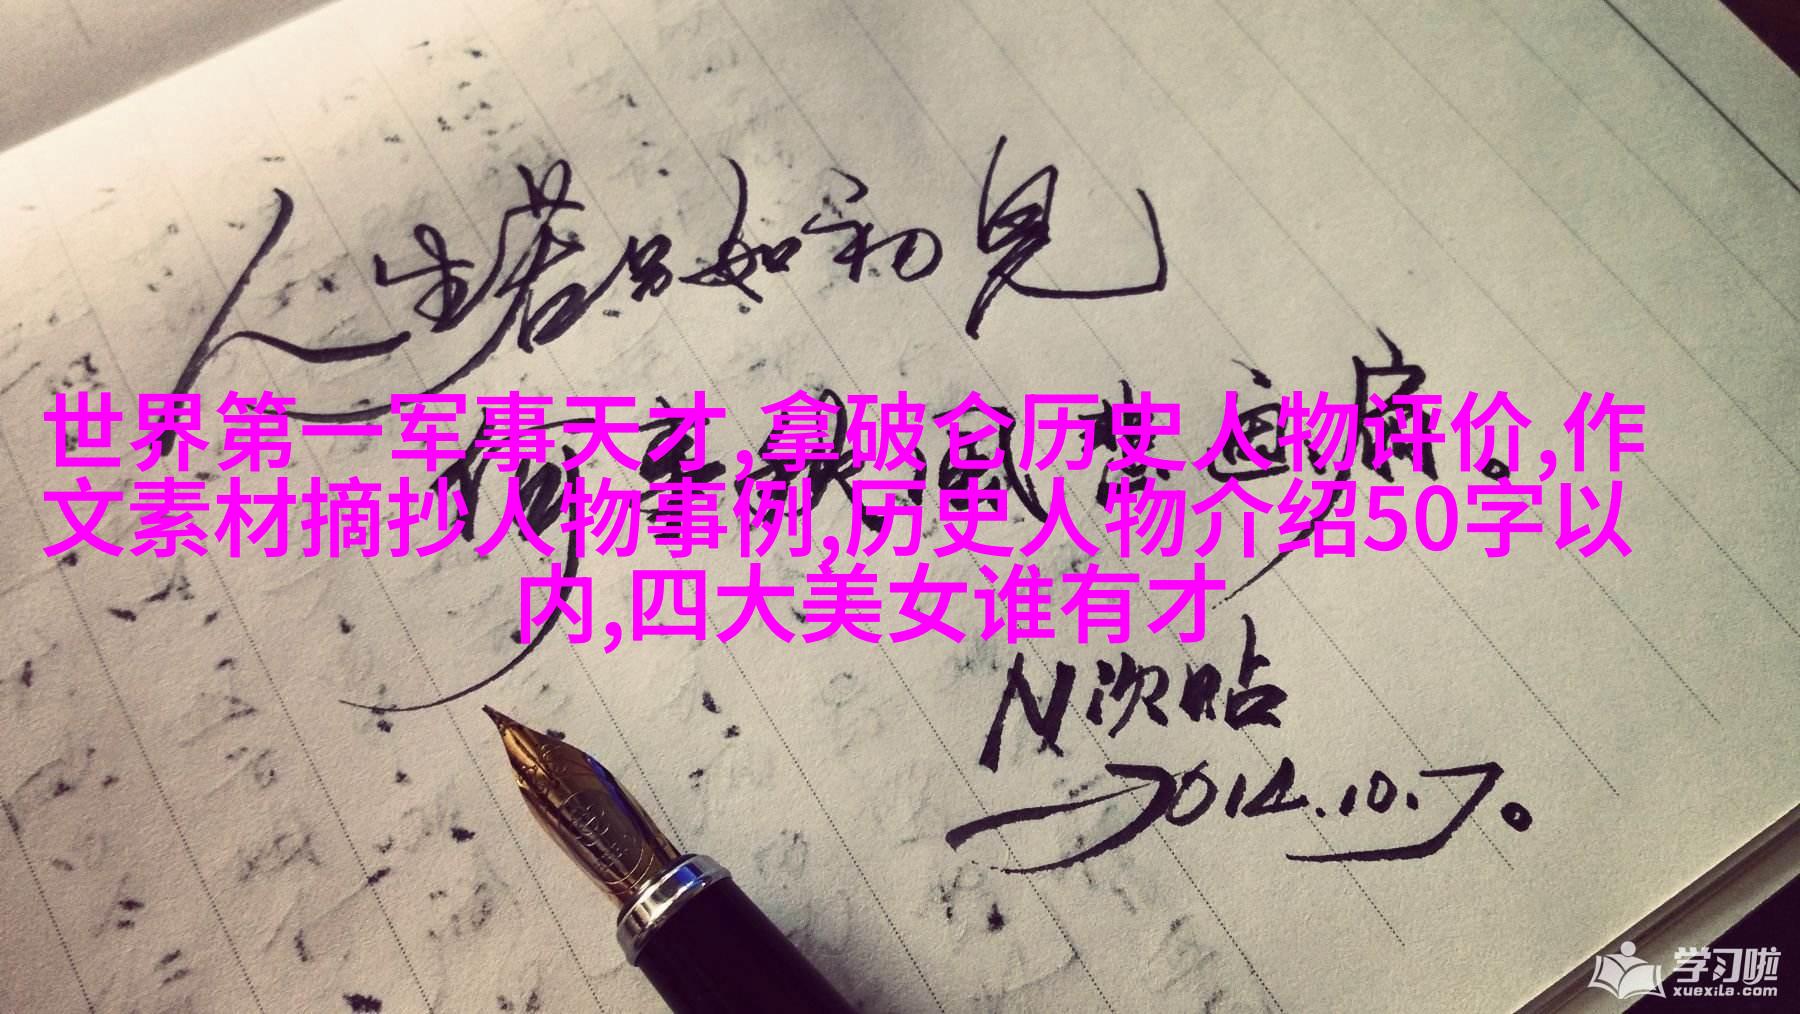 人生若只如初见
世界第一军事天才,拿破仑历史人物评价,作
何事秋风悲画扇。
文素材摘抄人物事例,历史人物介绍50字以
内,四大美女谁有才
N次贴
2014.10.7。
学习啦
xuexila.com